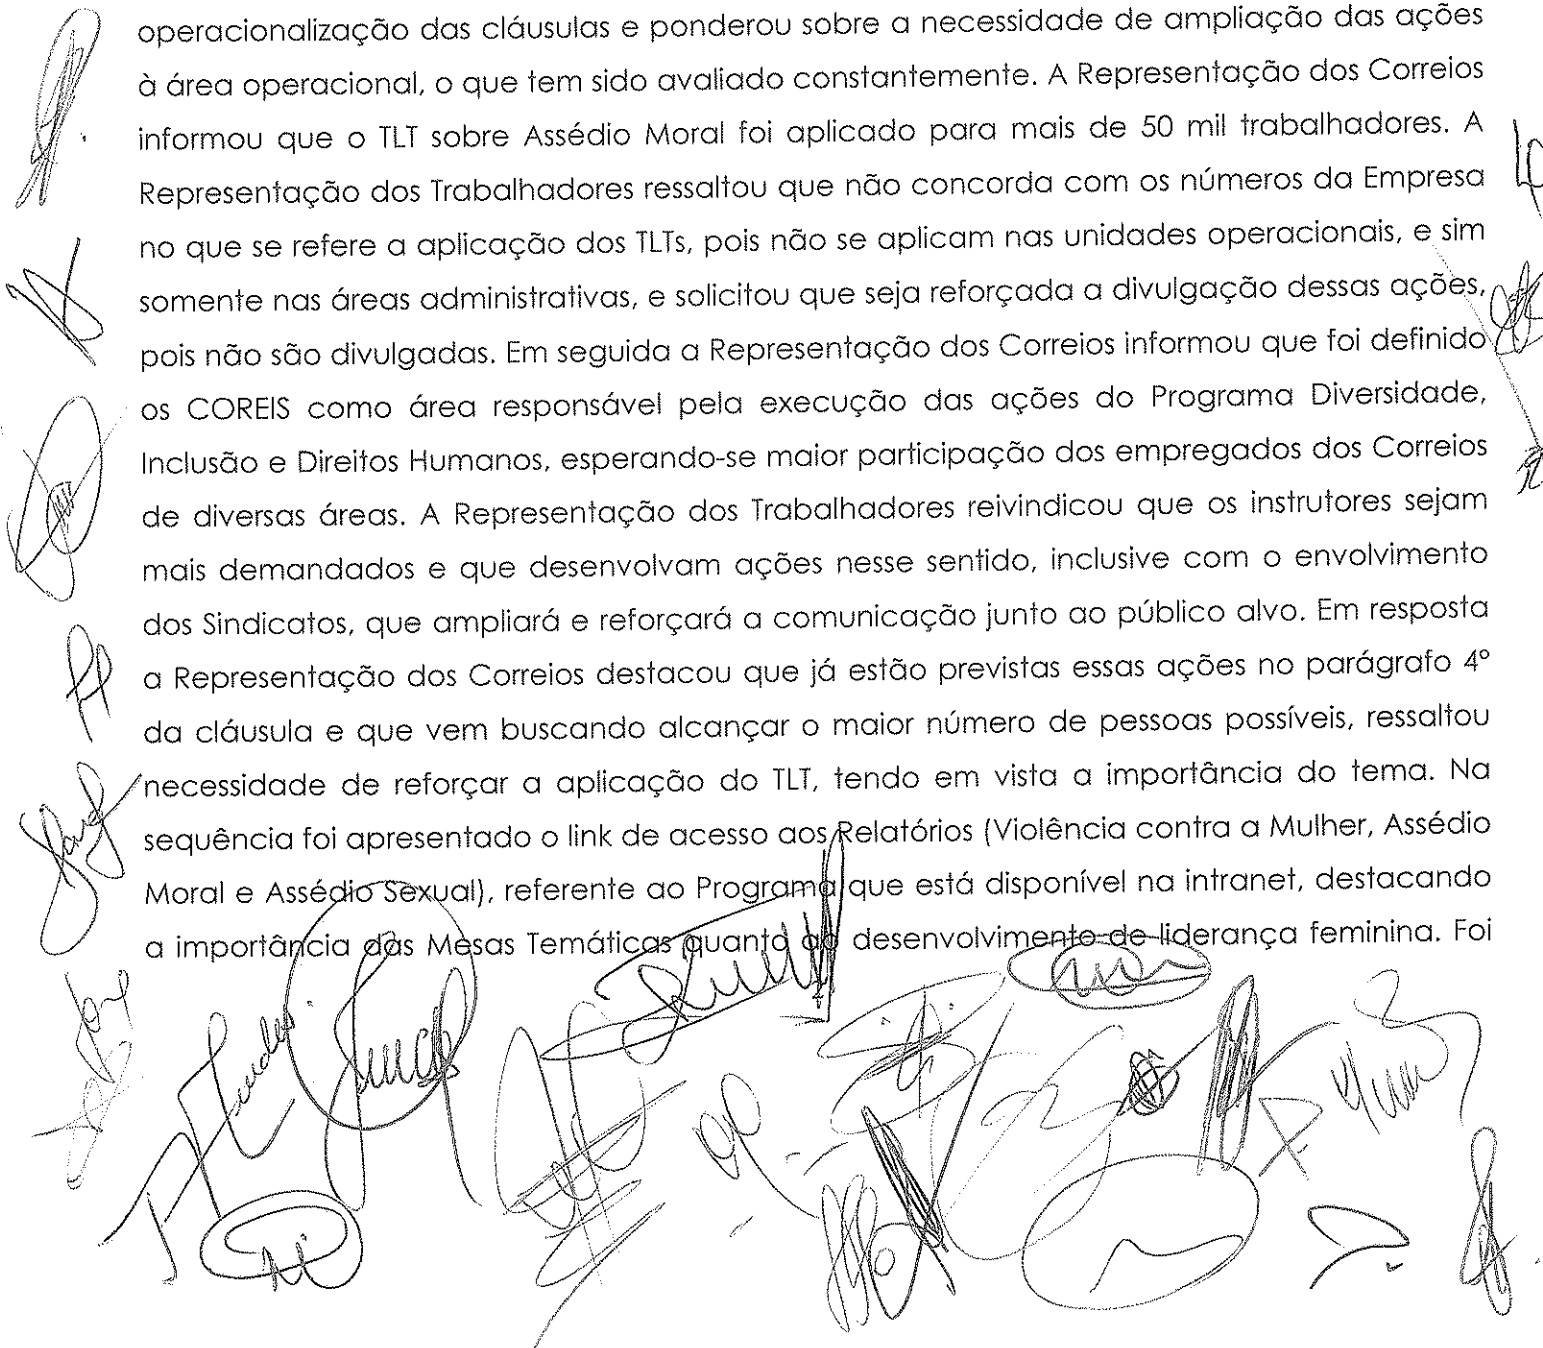 operacionalização das cláusulas e ponderou sobre a necessidade de ampliação das ações
à área operacional, o que tem sido avaliado constantemente. A Representação dos Correios
informou que o TLT sobre Assédio Moral foi aplicado para mais de 50 mil trabalhadores. A
Representação dos Trabalhadores ressaltou que não concorda com os números da Empresa
no que se refere a aplicação dos TLTs, pois não se aplicam nas unidades operacionais, e sim
somente nas áreas administrativas, e solicitou que seja reforçada a divulgação dessas ações,
pois não são divulgadas. Em seguida a Representação dos Correios informou que foi definido
os COREIS como área responsável pela execução das ações do Programa Diversidade,
Inclusão e Direitos Humanos, esperando-se maior participação dos empregados dos Correios
de diversas áreas. A Representação dos Trabalhadores reivindicou que os instrutores sejam
mais demandados e que desenvolvam ações nesse sentido, inclusive com o envolvimento
dos Sindicatos, que ampliará e reforçará a comunicação junto ao público alvo. Em resposta
a Representação dos Correios destacou que já estão previstas essas ações no parágrafo 4º
da cláusula e que vem buscando alcançar o maior número de pessoas possíveis, ressaltou
necessidade de reforçar a aplicação do TLT, tendo em vista a importância do tema. Na
sequência foi apresentado o link de acesso aos Relatórios (Violência contra a Mulher, Assédio
Moral e Assédio Sexual), referente ao Programa que está disponível na intranet, destacando
a importância das Mesas Temáticas quanto ao desenvolvimento de liderança feminina. Foi